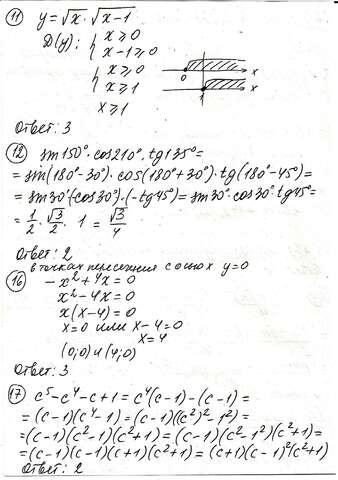 11 y = √x · √x-1
D(y): { x ≥ 0
x-1 ≥ 0
{ x ≥ 0
x ≥ 1
0 x
1 x
x ≥ 1
Ответ: 3
12 sin150° · cos210° · tg135° =
= sin(180°-30°) · cos(180°+30°) · tg(180°-45°) =
= sin30°(-cos30°) · (-tg45°) = sin30° · cos30° · tg45° =
= 1/2 · √3/2 · 1 = √3/4
Ответ: 2
в точках пересечения с осью x y=0
16 -x² + 4x = 0
x² - 4x = 0
x(x-4) = 0
x=0 или x-4=0
x=4
(0;0) и (4;0)
Ответ: 3
17 c⁵-c⁴-c+1 = c⁴(c-1)-(c-1) =
= (c-1)(c⁴-1) = (c-1)((c²)²-1²) =
= (c-1)(c²-1)(c²+1) = (c-1)(c²-1²)(c²+1) =
= (c-1)(c-1)(c+1)(c²+1) = (c+1)(c-1)²(c²+1)
Ответ: 2